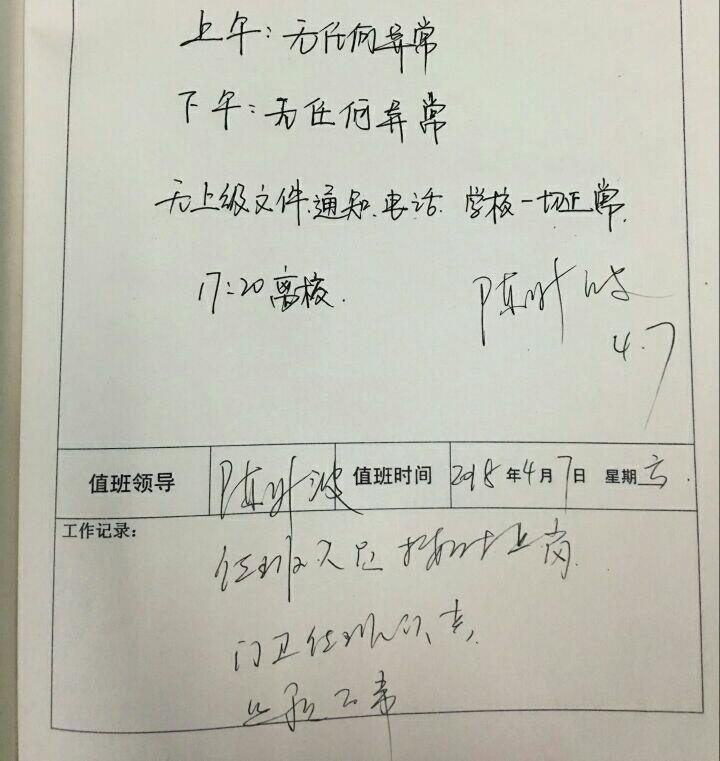 上午:无任何异常
下午:无任何异常
无上级文件、通知、电话、学校一切正常.
17:20离校.
陈叶波
4.7
值班领导 陈叶波 值班时间 2018年4月7日 星期六.
工作记录:
值班人员按时上岗.
门卫值班认真,
一切正常